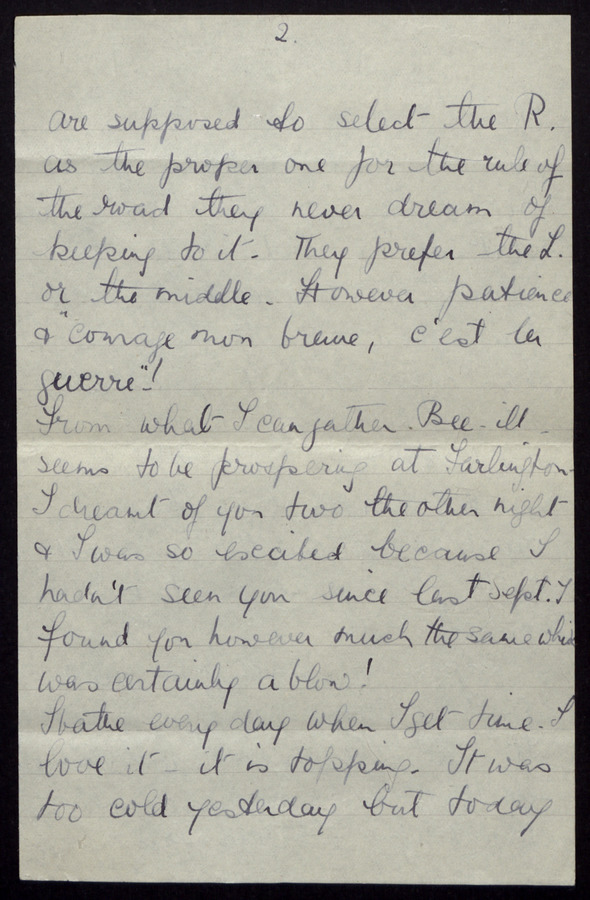 2.
are supposed to select the R.
as the proper one for the rule of
the road they never dream of
keeping to it - They prefer the L.
or the middle. However patience
& "Courage mon brave, c'est la
guerre"!
From what I can gather. Bee-ill
seems to be prospering at Farlington -
I dreamt of you two the other night
& I was so excited because I
hadn't seen you since last Sept. I
found you however much the same which
was certainly a blow!
I bathe every day when I get time. I
love it - it is topping. It was
too cold yesterday but today